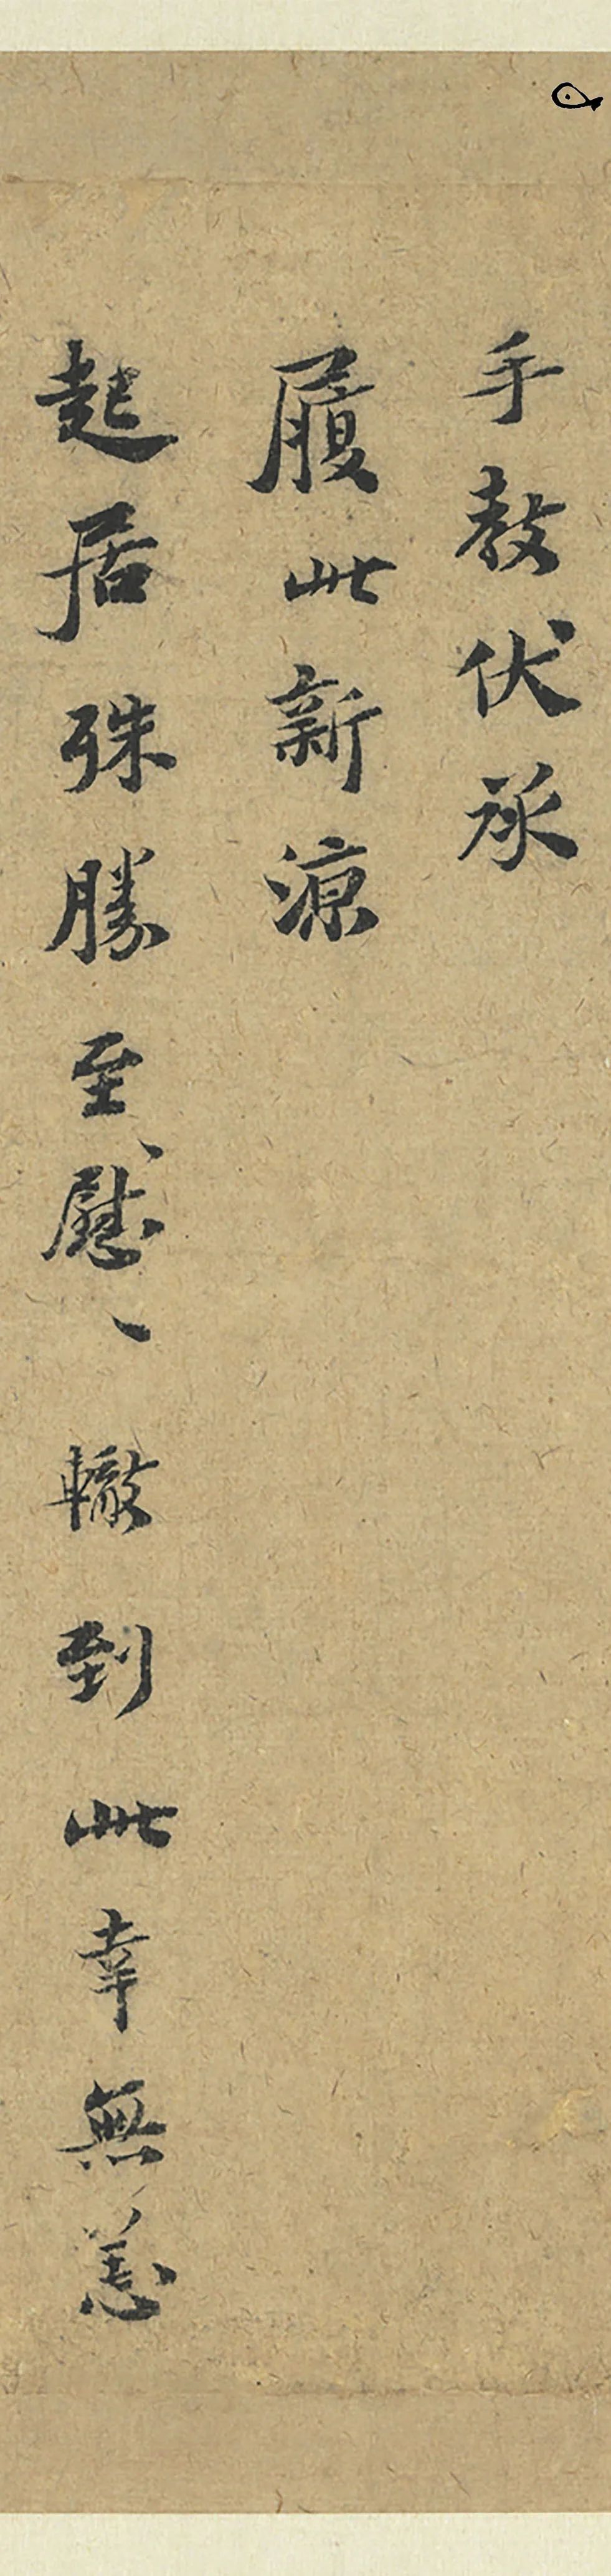 手教伏承
履此新凉
起居殊勝至慰、、轍到此幸無恙